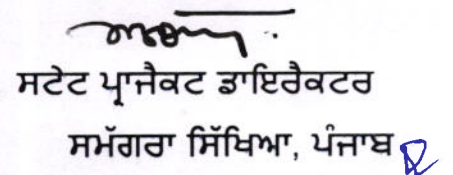 ਸਟੇਟ ਪ੍ਰਾਜੈਕਟ ਡਾਇਰੈਕਟਰ
ਸਮੱਗਰਾ ਸਿੱਖਿਆ, ਪੰਜਾਬ